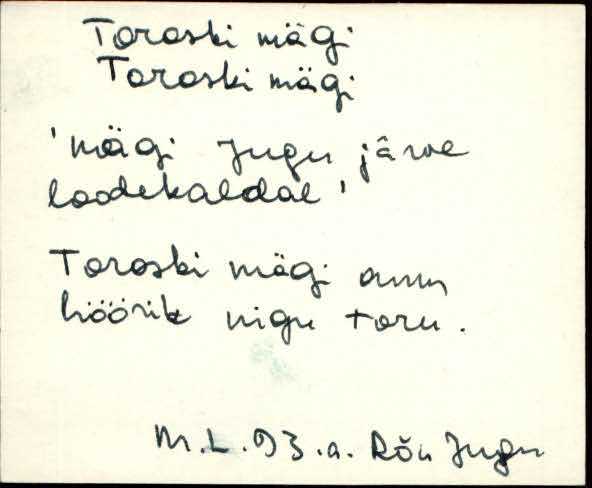 Toroski mägi
Toroski mägi
'mägi Jugu järve
loodekaldal'
Toroski mägi
höörik nigu toru.
M.L. 93.a. Rõu Jugu